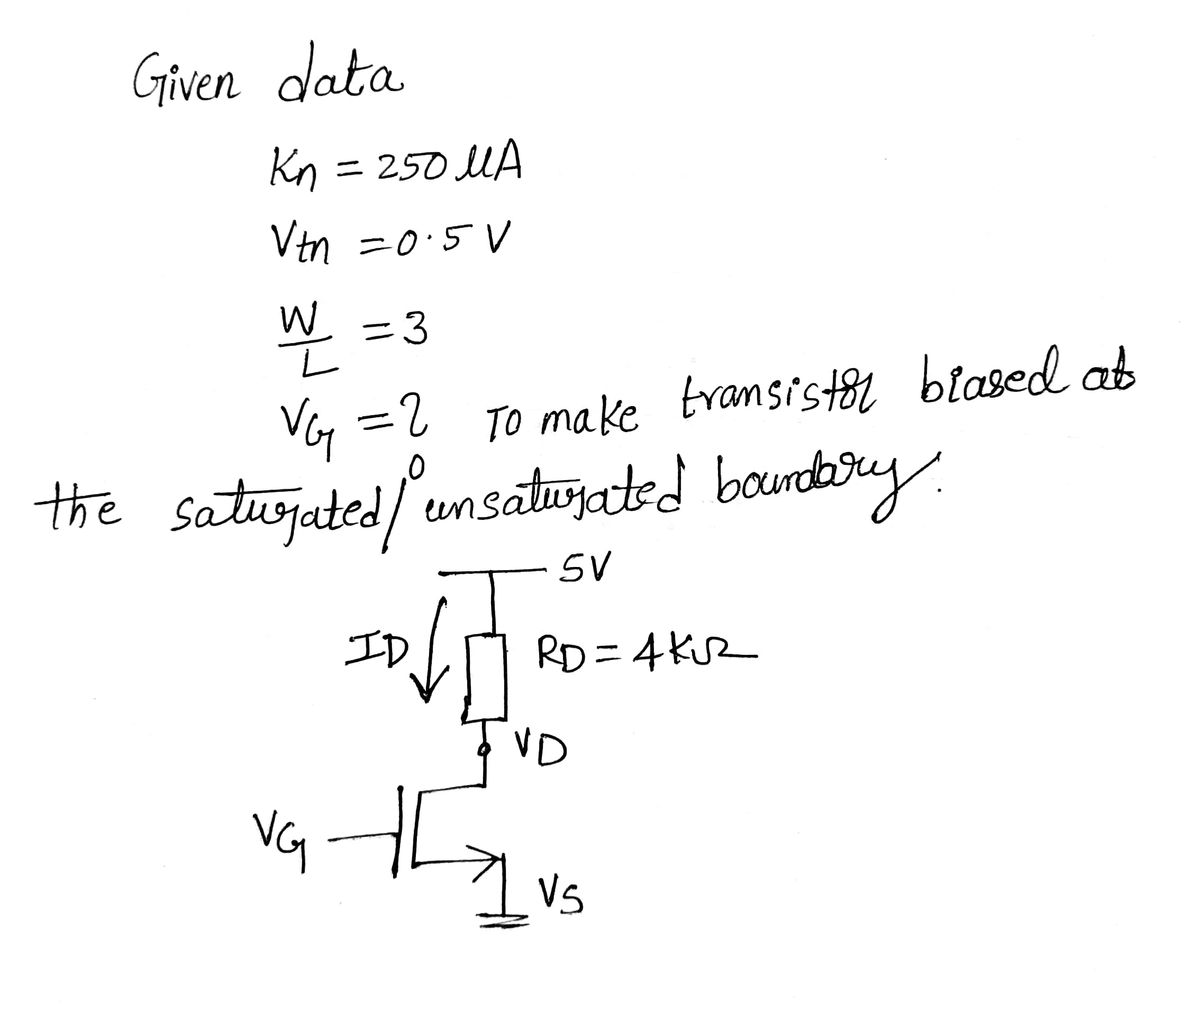 Given data
Kn = 250 μA
Vtn = 0.5 V
W/L = 3
VG = ? To make transistor biased at
the saturated/unsaturated boundary.
5V
ID
RD = 4KΩ
VD
VG
VS